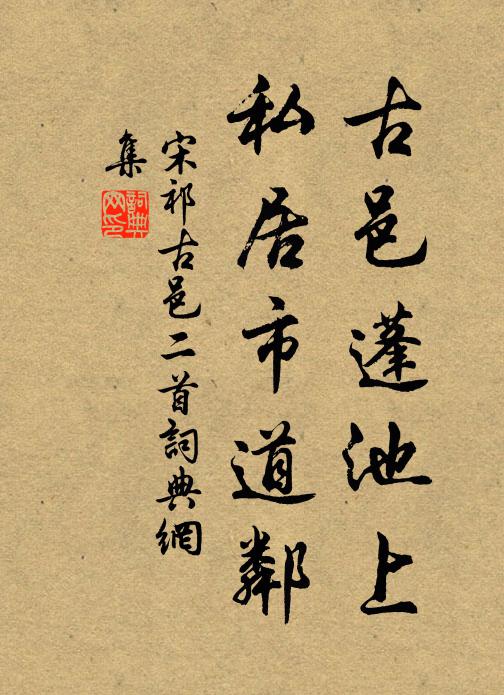 古邑蓬池上
私居市道鄰
宋祁古邑二首詞典網
集
詞典網印